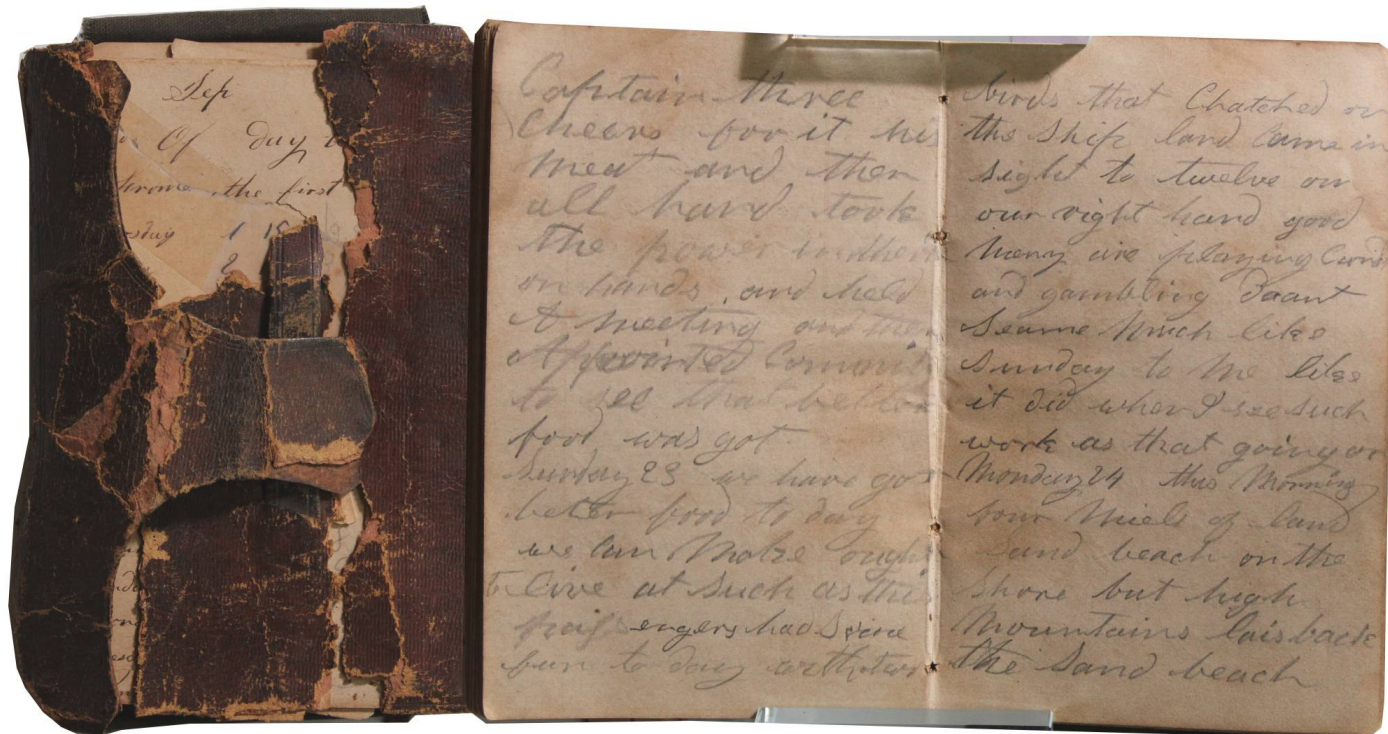 Sep
Of day
the first
1 18
Captain three
Cheers for it his
meat and then
all hand took
the power in their
on hands and held
A meeting and then
Appointed Committ
to see that better
food was got
Sunday 23 we have got
better food to day
we Can Make ought
to live at Such as this
passengers had Some
fun to day with two
birds that Chatched on
the Ship land Came in
Sight to twelve on
our right hand good
Meny are playing Cards
and gambling Doant
Seame Much like
Sunday to Me like
it did when I see such
work as that going on
Monday 24 this Morning
four Miels of land
Sand beach on the
Shore but high
Mountains lais back
the Sand beach